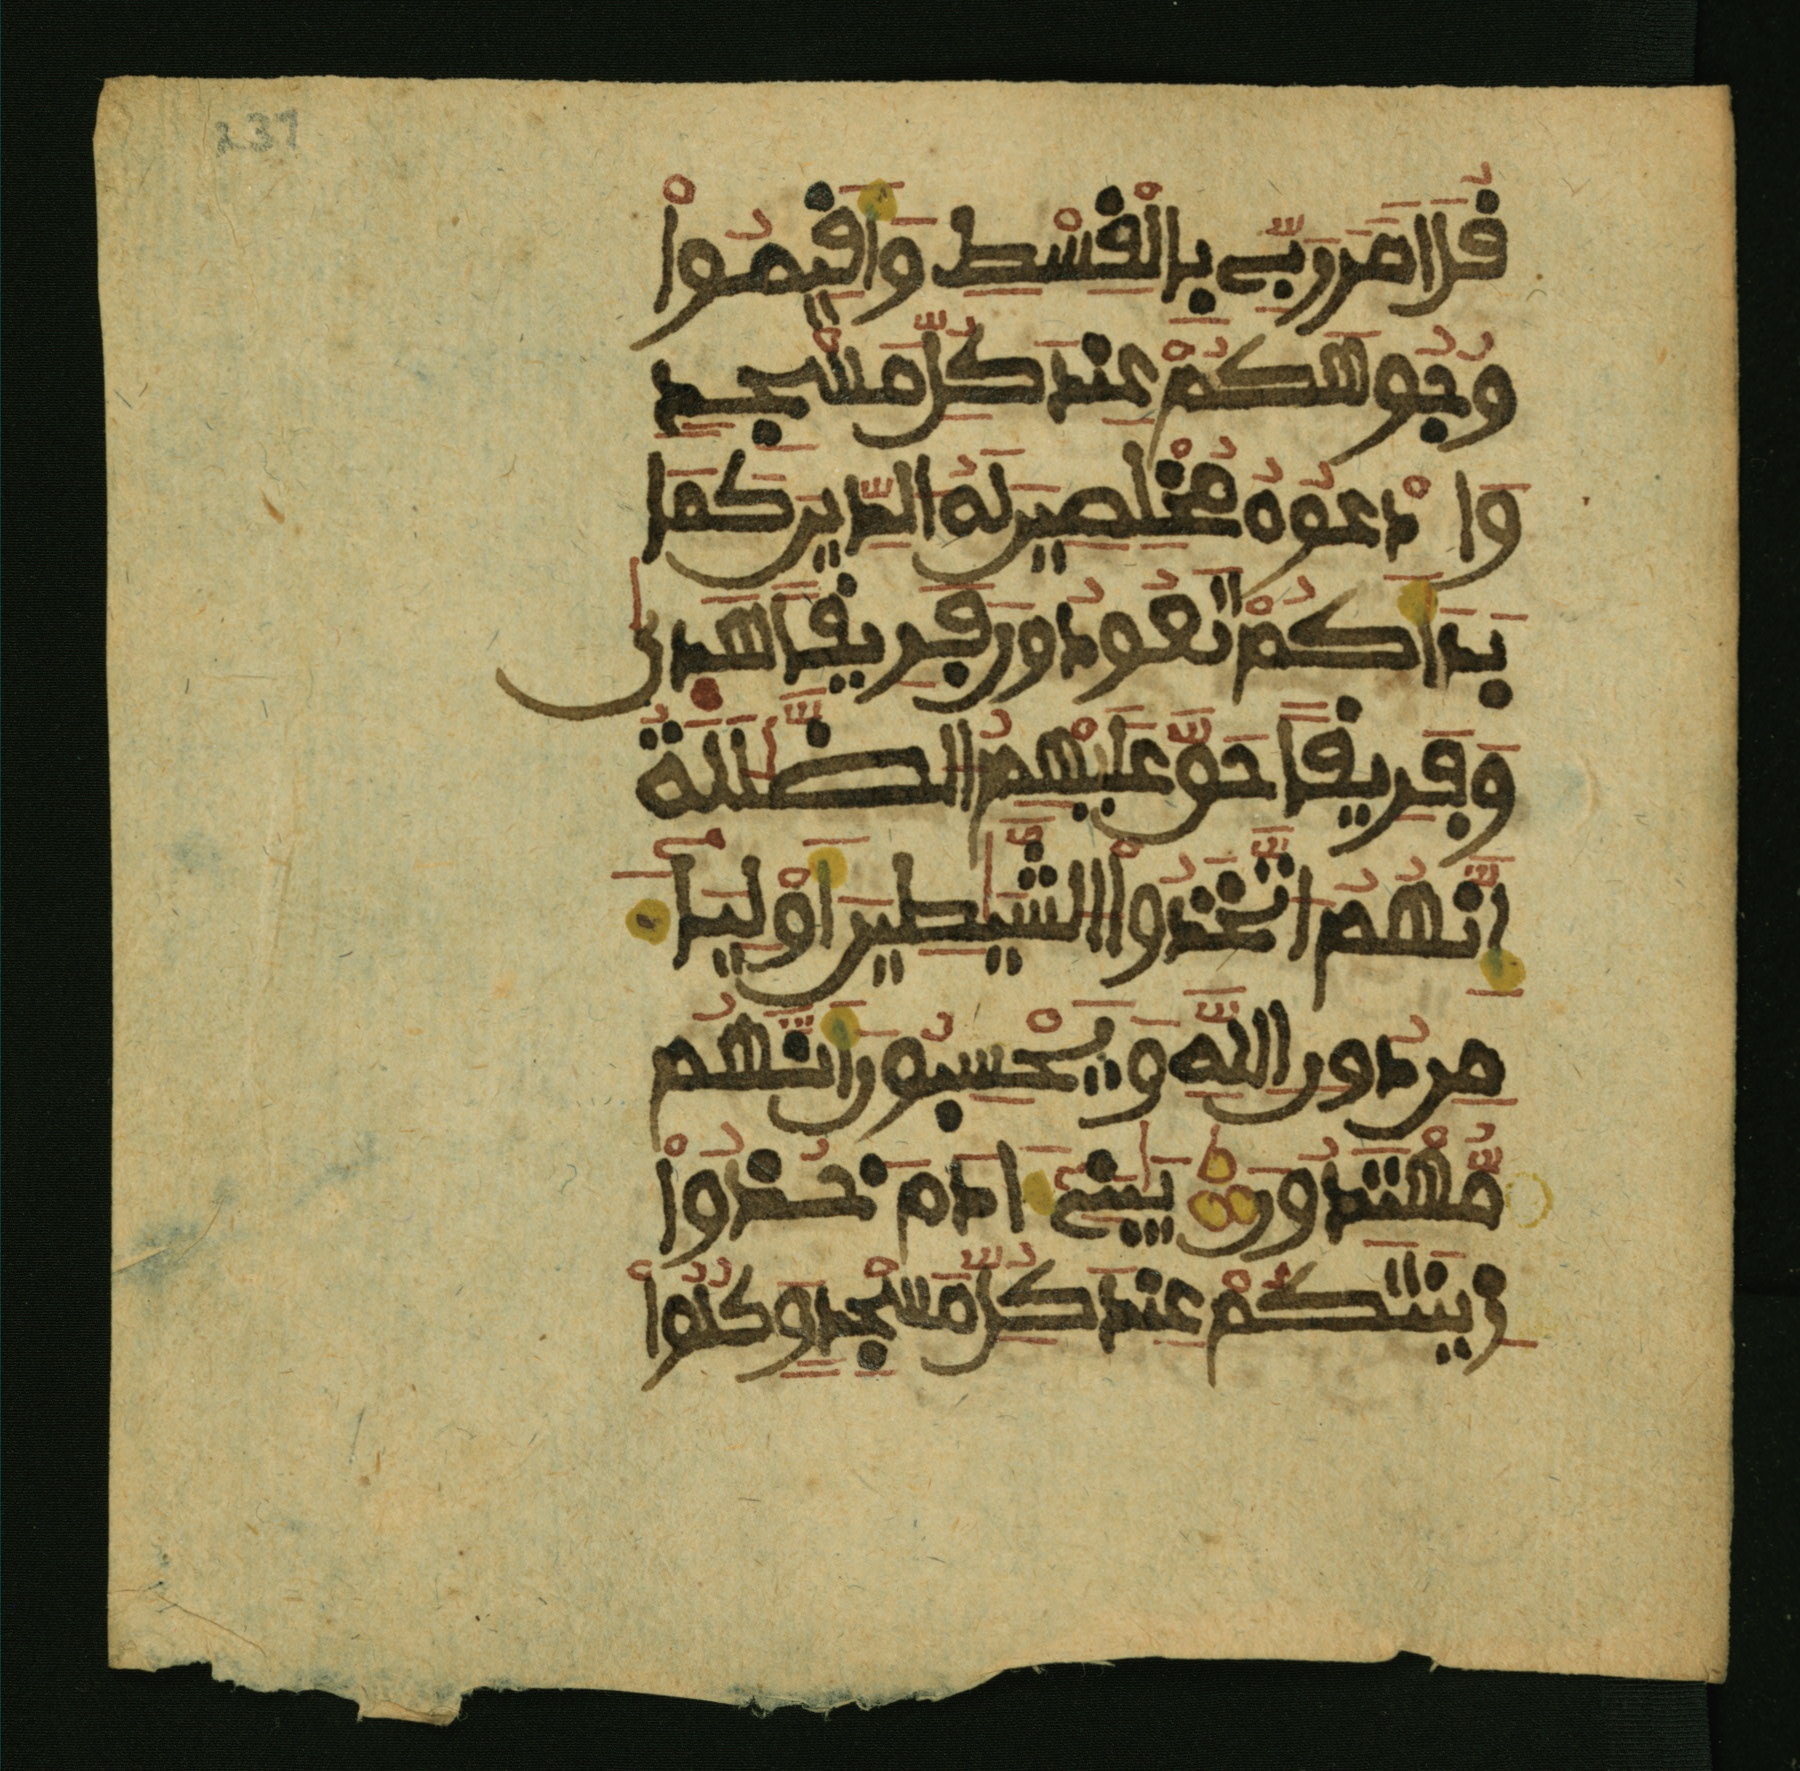 231
قُلَ امَرَ رَبِّے بِالْقِسْطِ وَأَقِيمُواْ
وُجُوهَكُمْ عِندَ كُلِّ مَسْجِدٍ
وَادْعُوهُ مُخْلِصِينَ لَهُ الدِّينَ كَمَا
بَدَأَكُمْ تَعُودُونَ فَرِيقاً هَدىٰ
وَفَرِيقاً حَقَّ عَلَيْهِمُ الضَّلَٰلَةُ
إِنَّهُمُ اتَّخَذُواْ الشَّيَٰطِينَ أَوْلِيَآءَ
مِن دُونِ اللَّهِ وَيَحْسِبُونَ أَنَّهُم
مُّهْتَدُونَ يَٰبَنِےٓ ءَادَمَ خُذُواْ
زِينَتَكُمْ عِندَ كُلِّ مَسْجِدٍ وَكُلُواْ